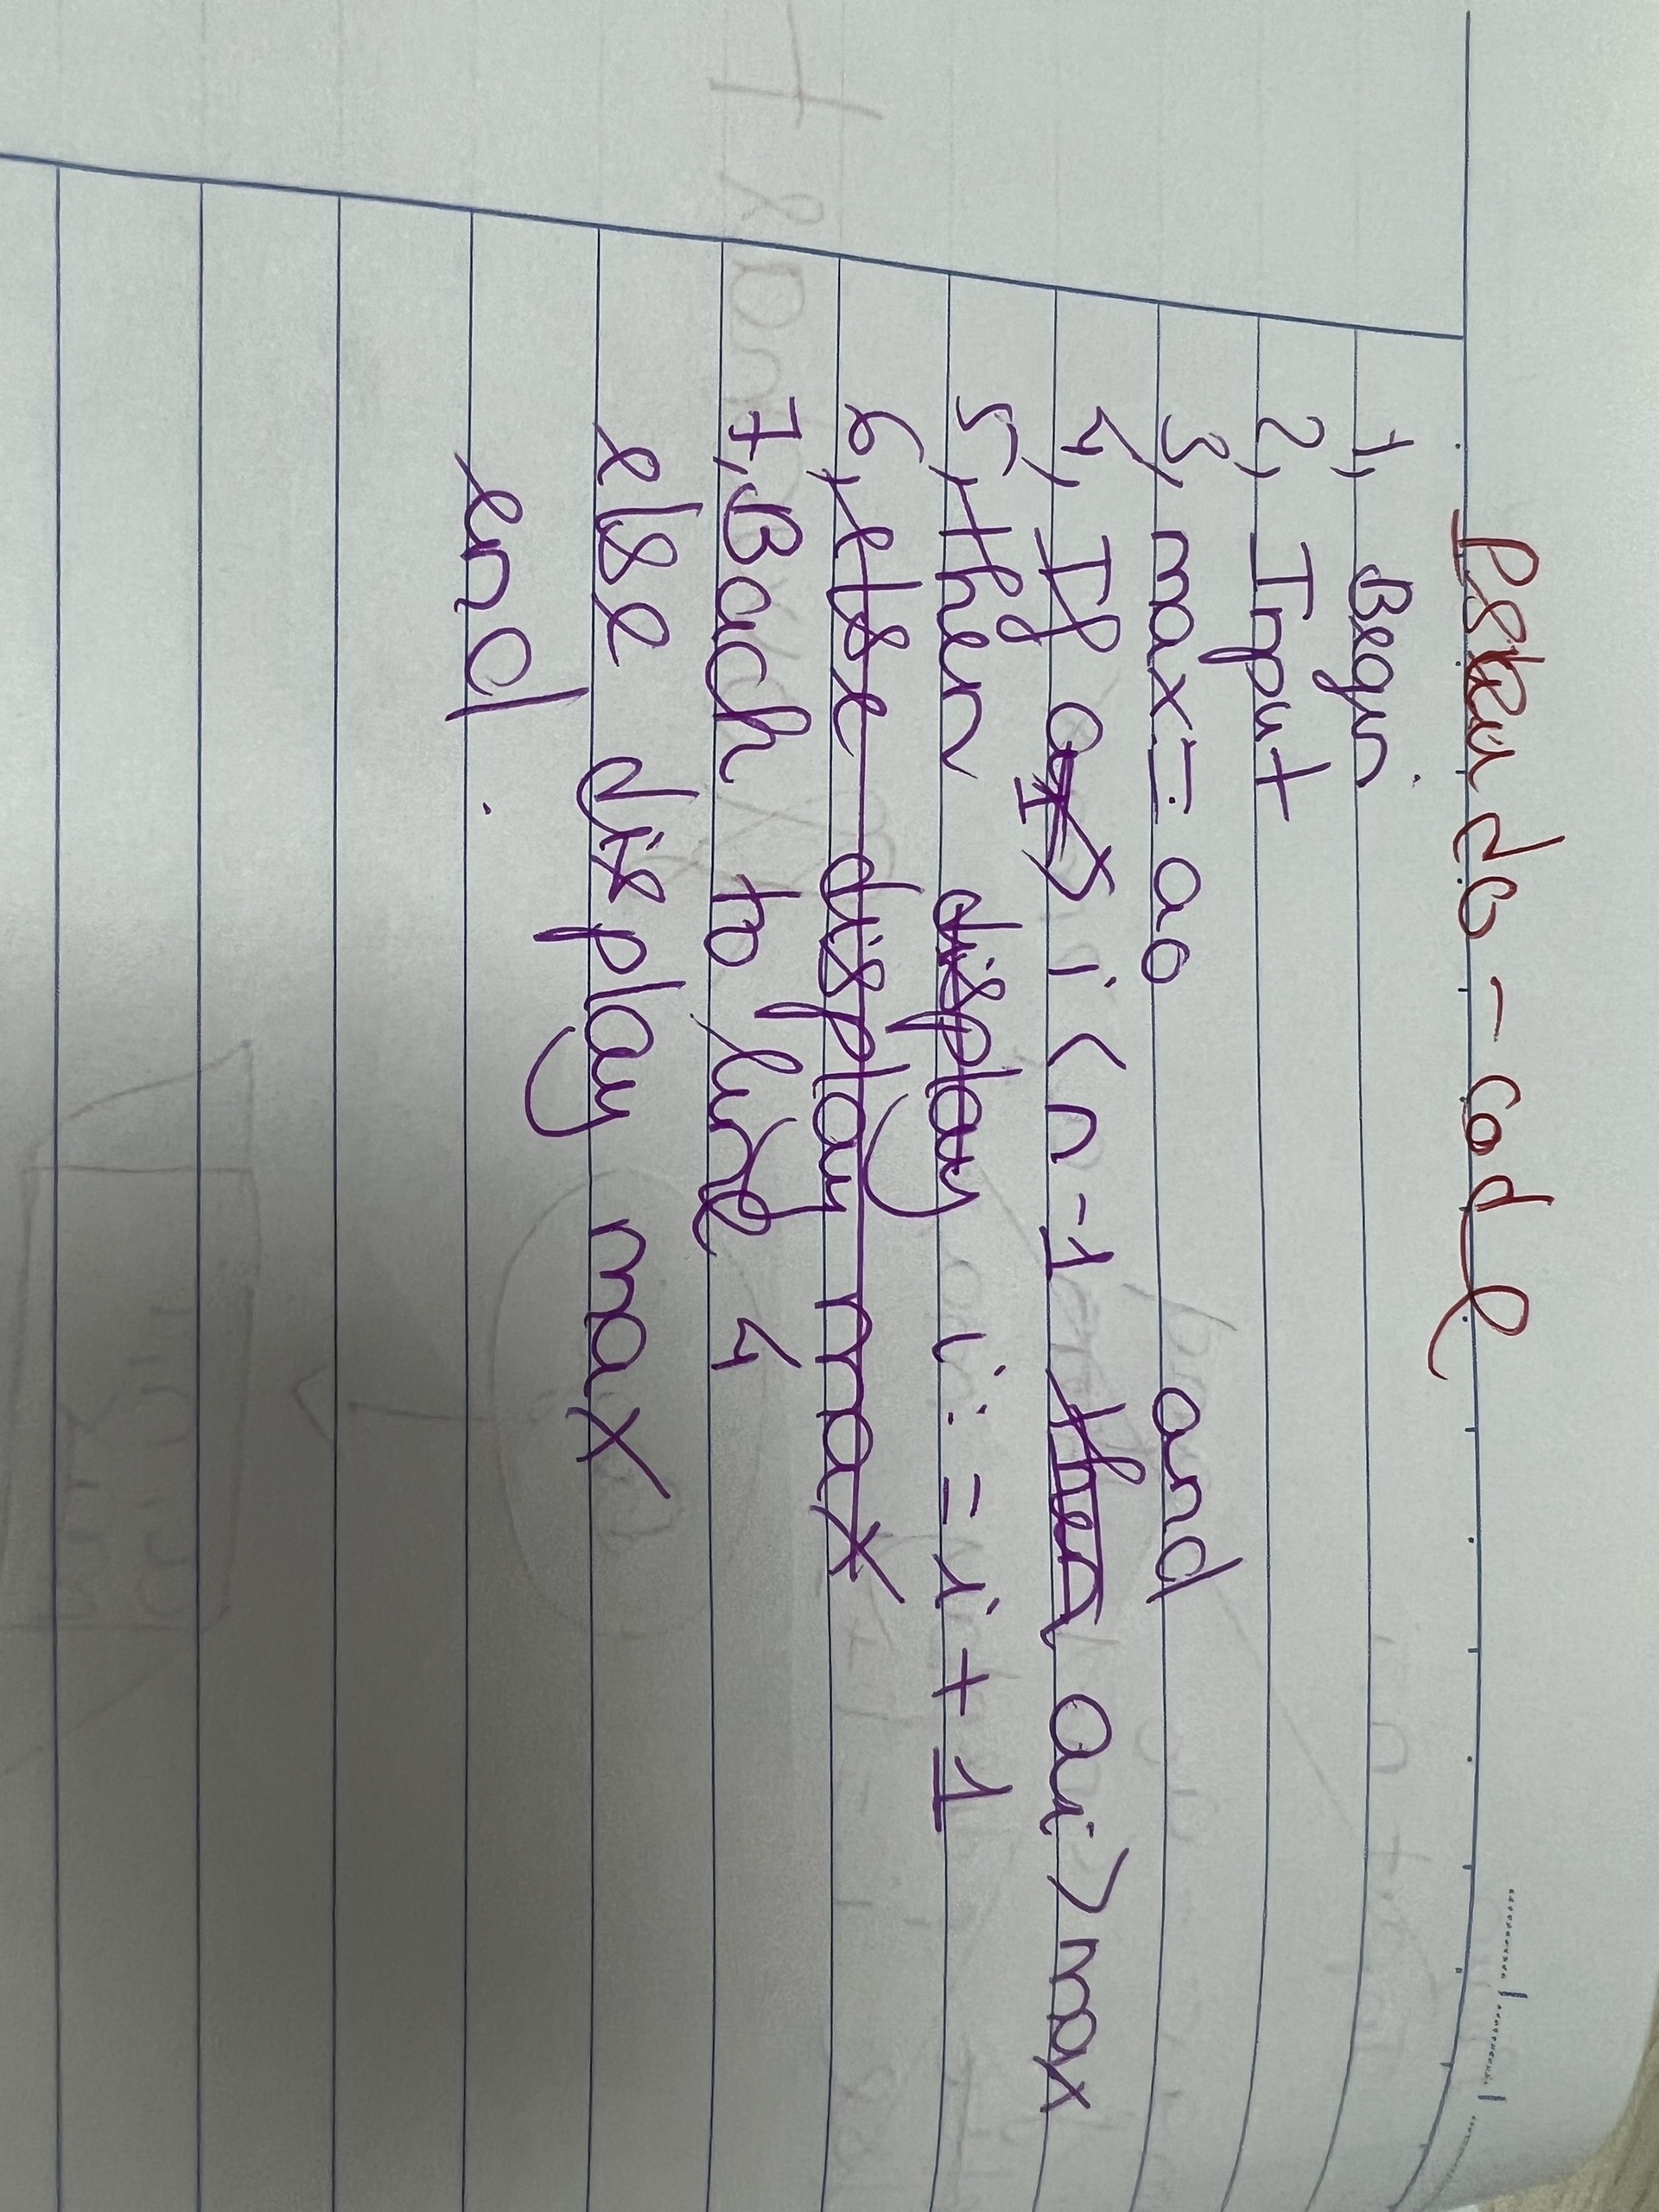 Pseudo-code
1, Begin
2, Input
3, max = ao
and
4, If i < n-1 then ai > max
5, then display i := i + 1
6, else display max
7, Back to line 4
else display max
end.